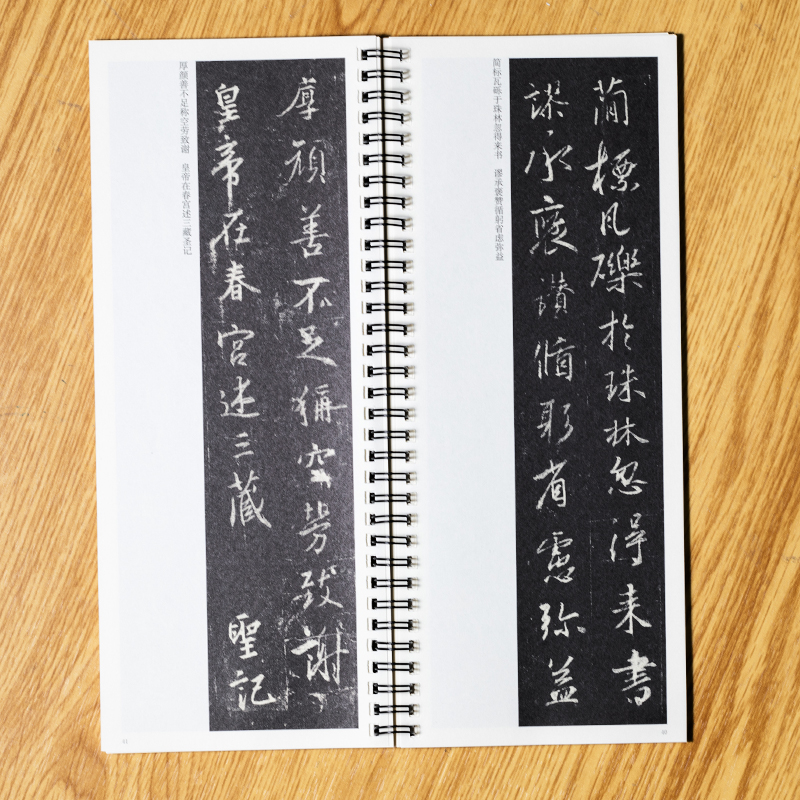 蕳標瓦礫於珠林忽得来書
謬承褒讚循躬省慮弥益
简标瓦砾于珠林忽得来书 谬承褒赞循躬省虑弥益
厚顔善不足稱空勞致謝
皇帝在春宮述三藏 聖記
厚颜善不足称空劳致谢 皇帝在春宫述三藏圣记